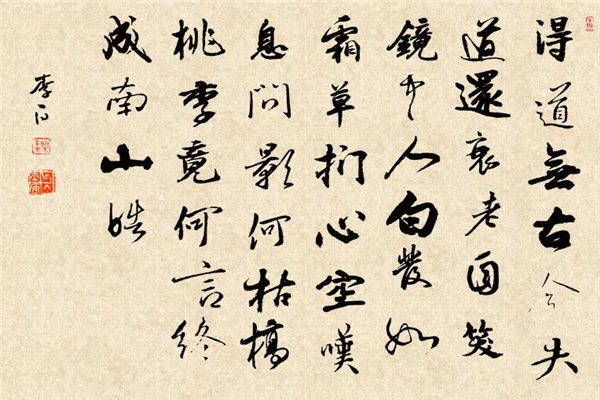 得道無古今失
道還衰老自笑
鏡中人白發如
霜草捫心空嘆
息問影何枯槁
桃李竟何言終
成南山皓
李白